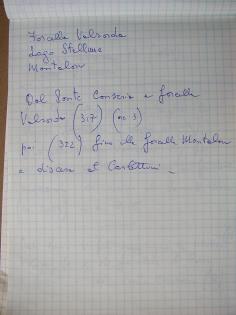 Forcella Valsorda
Lago Stellune
Montalon
Dal Ponte Conseria a forcella
Valsorda (317) (ore 3)
poi (322) fino alla forcella Montalon
e discesa al Carlettini.